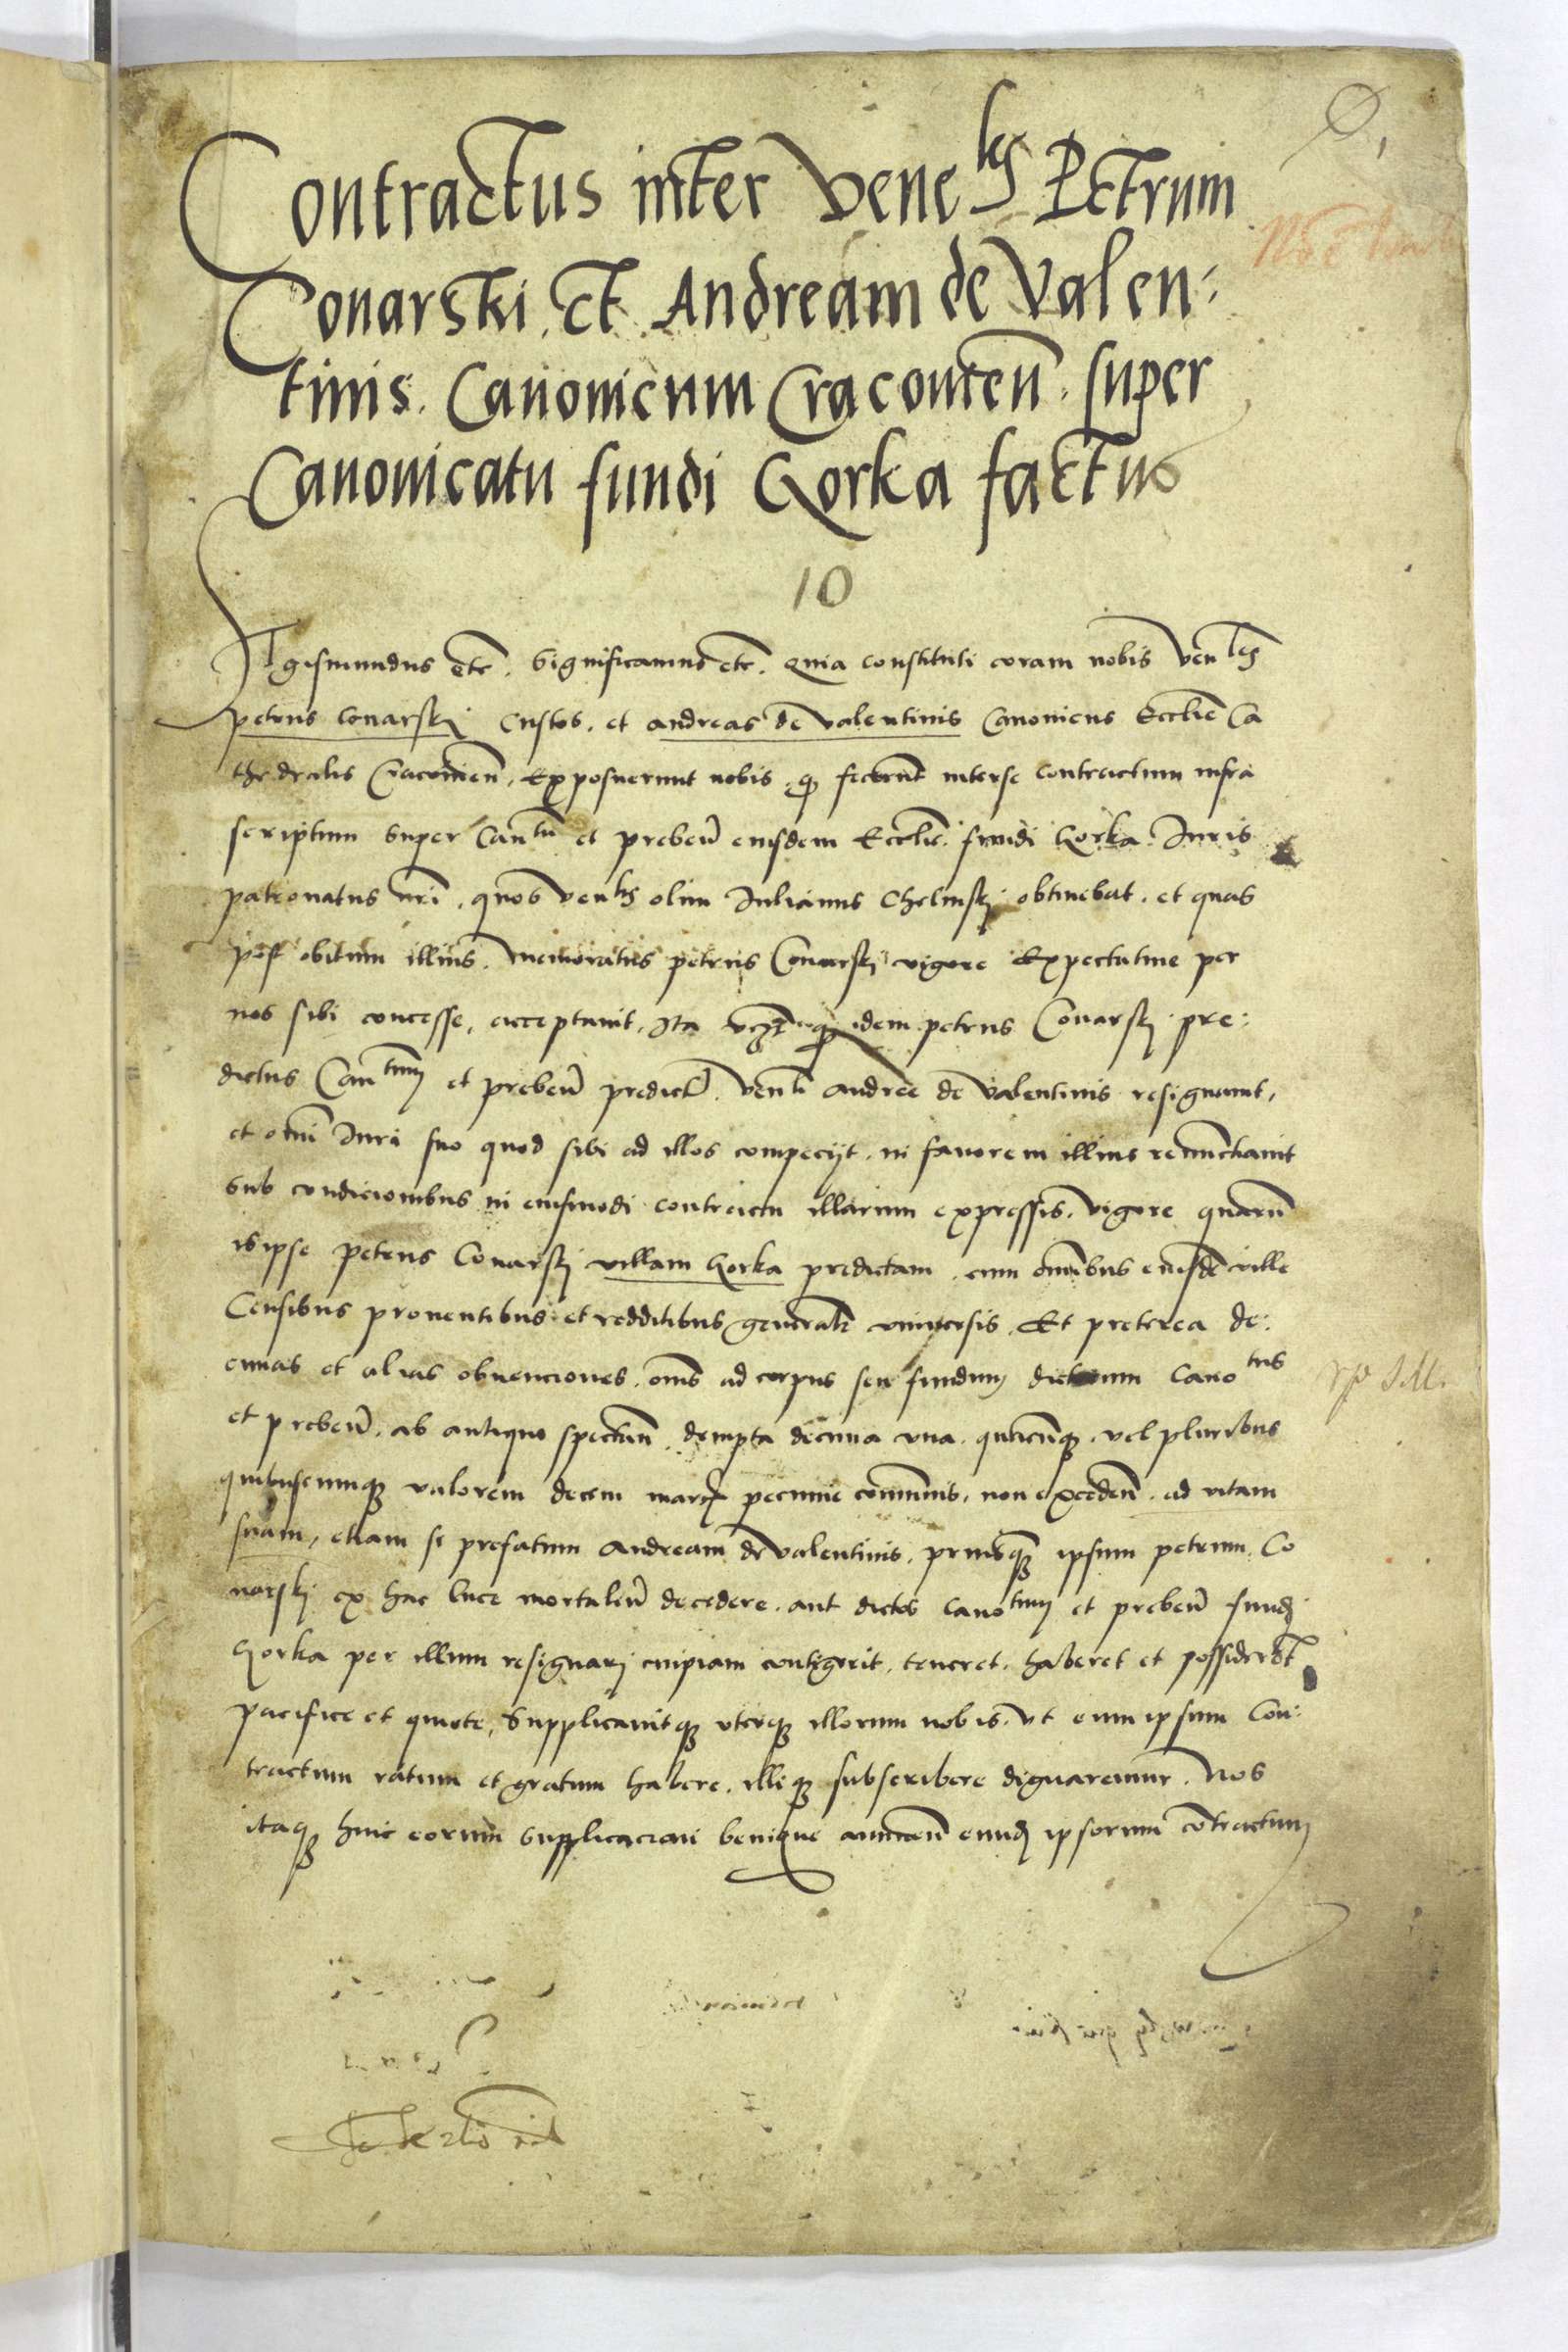 Contractus inter Venebles Petrum
Conarski, et Andream de Valen-
tinis. Canonicum Cracouien̄. super
Canonicatu fundi Gorka factus
10
Sigismundus etc̄. Significamus etc̄. Quia constituti coram nobis ven̄les
petrus Conarski Custos. et andreas de valentinis Canonicus Ecclie̅ Ca
thedralis Cracouien̄. Exposuerunt nobis, q̄ fecerunt interse contractum infra
scriptum super Can̄tu et preben̄ eiusdem Ecclie̅. fundi Gorka. Iuris
patronatus nr̄i. quos ven̄lis olim Iulianus Chelmski obtinebat. et quas
post obitum illius. memoratus petrus Conarski vigore Expectatiue per
nos sibi concesse, acceptauit, Ita idem petrus Conarski pre:
dictus Can̄tum et preben̄ predict̄. ven̄li andree de Valentinis resignauit,
et om̄i Iuri suo quod sibi ad illos competijt. in fauorem illius renunctiauit
sub condicionibus in eiusmodi contractu illarum expressis. Vigore quarum̄
is ipse petrus Conarski villam Gorka predictam. cum om̄ibus eiusdē ville
Censibus prouentibus et redditibus generalr̄ vniuersis. Et preterea de:
cimas et alias obuenciones. om̄s ad corpus seu fundum dictorum Canotus
et preben̄. ab antiquo spectan̄. dempta decima vna. quacunq̄. vel pluribus
quibuscumq̄ valorem decem marc̄ pecunie com̄unis, non exceden̄. ad vitam
suam, etiam si prefatum Andream de Valentinis. priusq̄ ipsum petrum Co
narski ex hac luce mortaliu̅ decedere. aut dictos Canotum et preben̄ fundi
Gorka per illum resignari cuipiam contigerit. teneret. haberet et possideret
pacifice et quiete, Supplicauitq̄ uterq̄ illorum nobis. vt eum ipsum Con:
tractum ratum et gratum habere. illiq̄ subscribere dignaremur. Nos
itaq̄ huic eorum supplicacioni benigne annuen̄ eund̄ ipsorum contractum